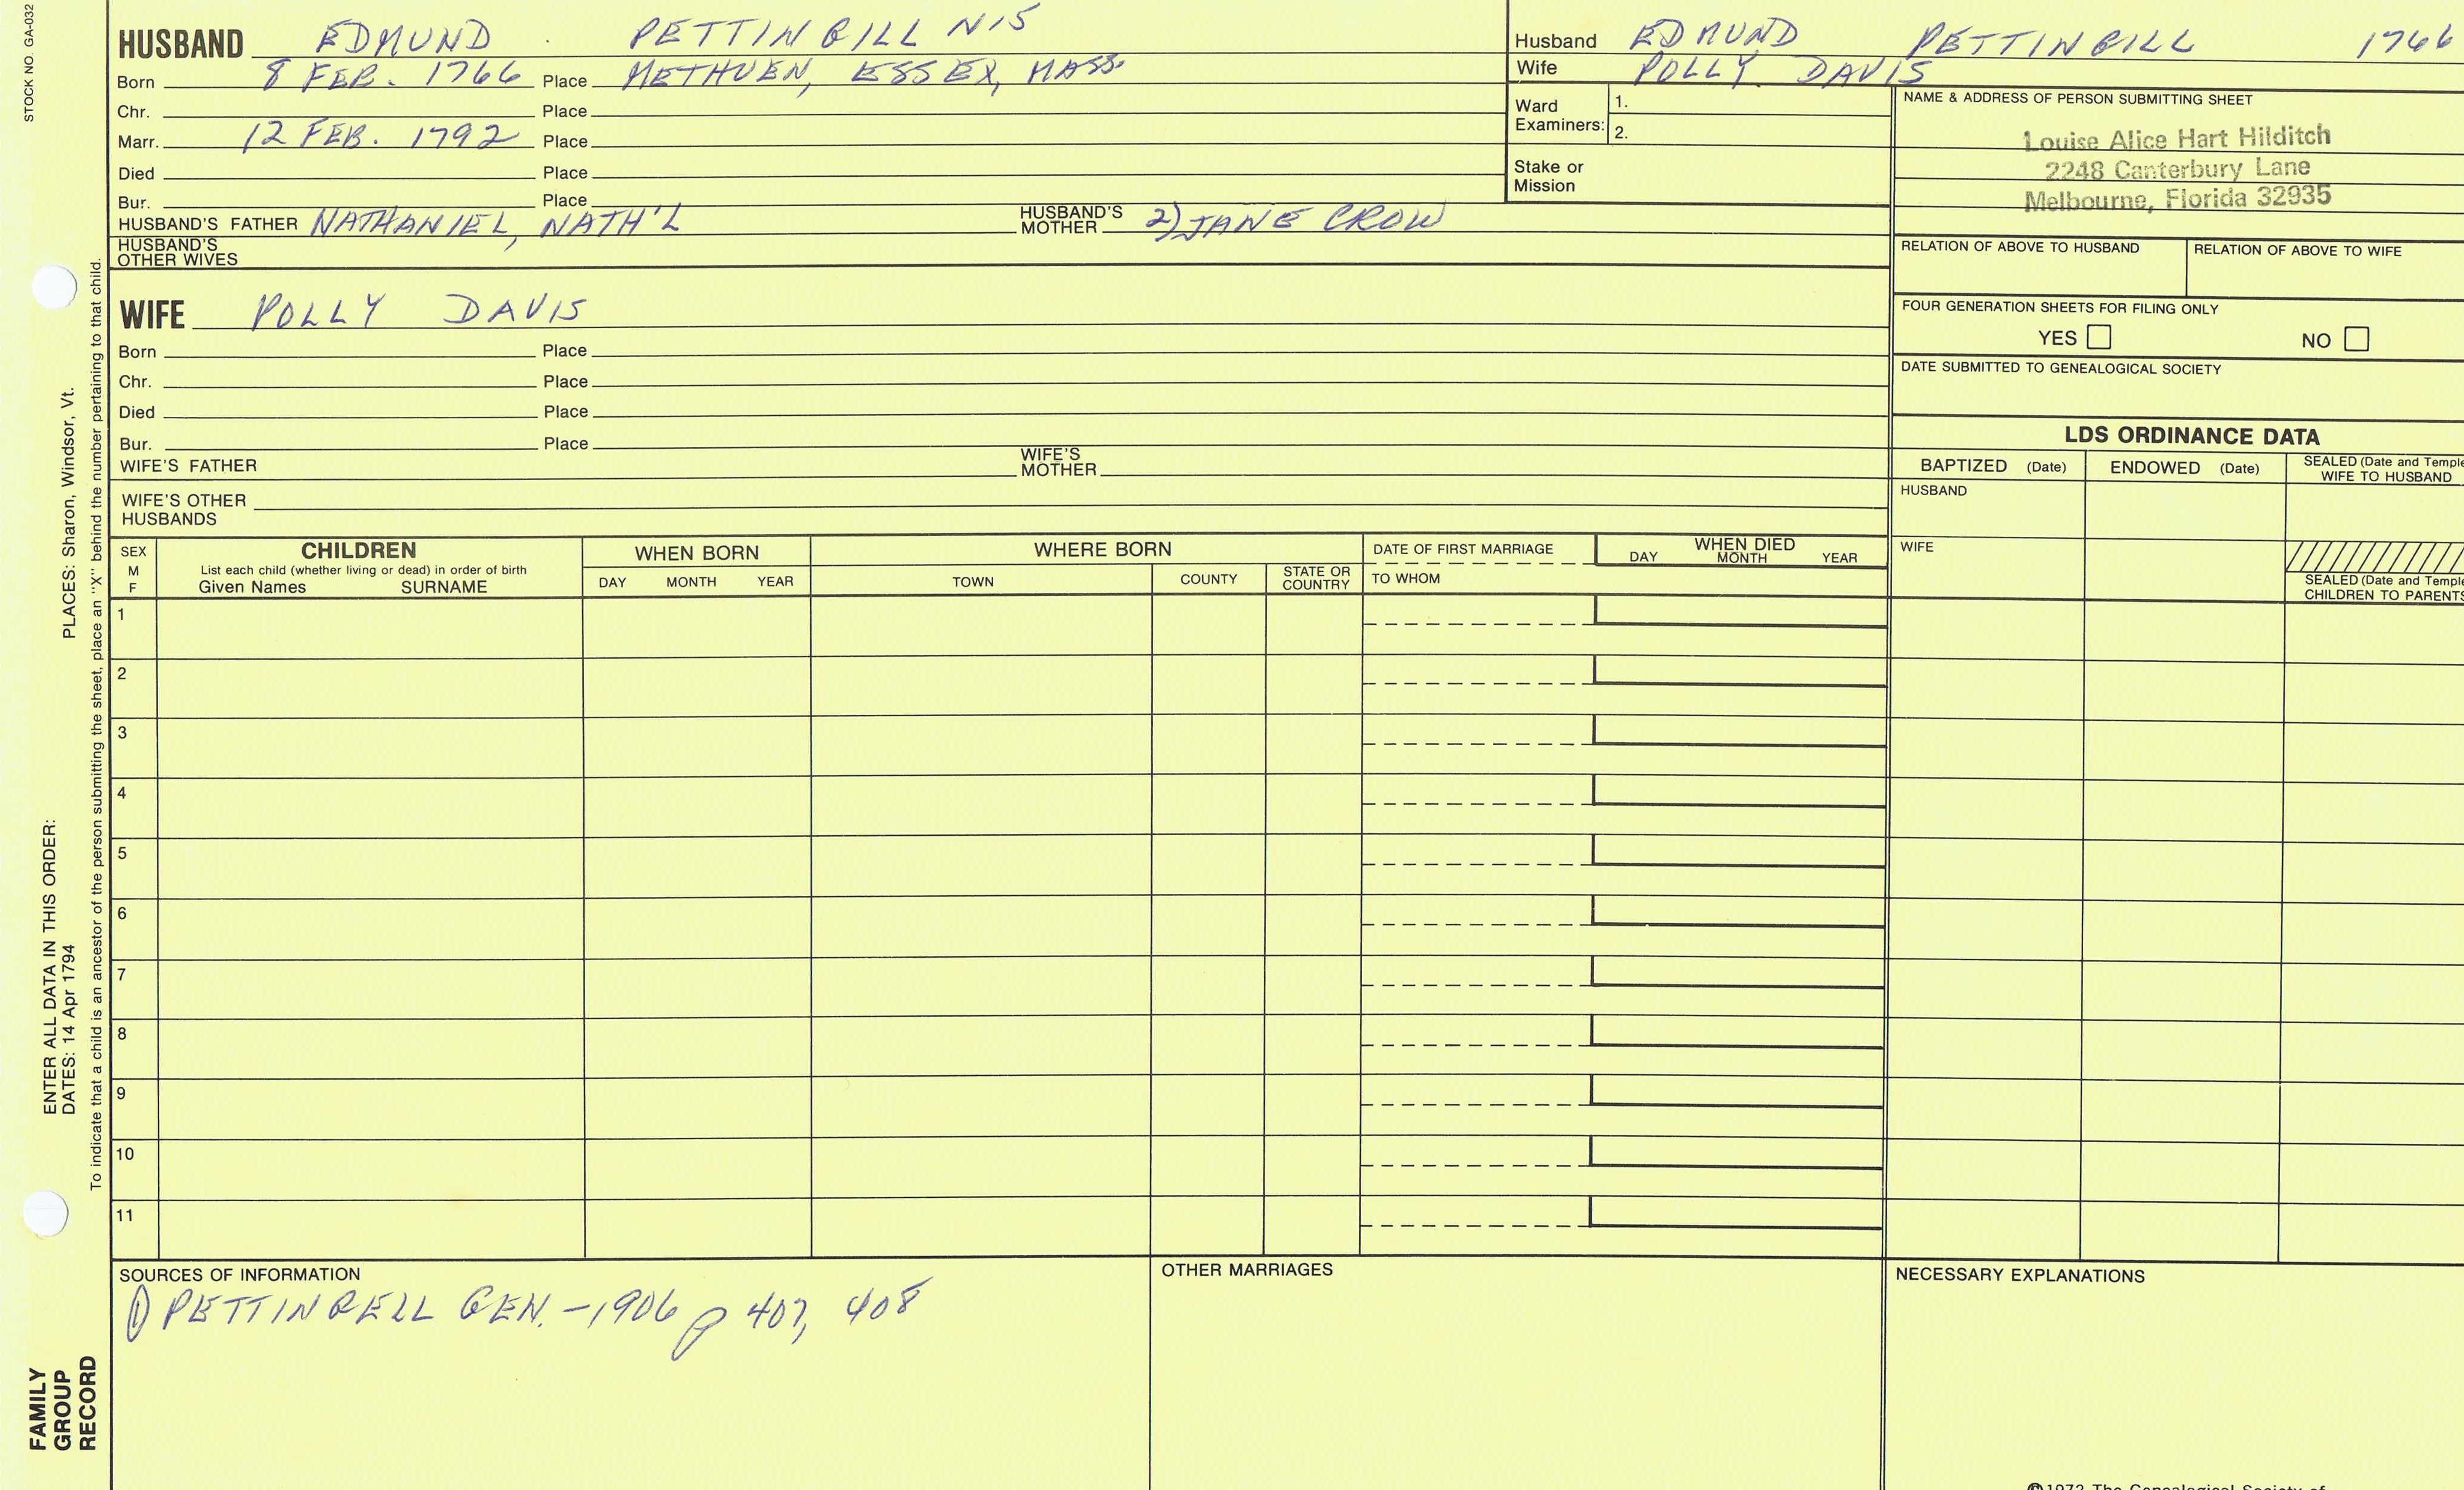 STOCK NO. GA-032
HUSBAND EDMUND PETTINGILL N15
Born 8 FEB. 1766 Place METHUEN, ESSEX, MASS.
Chr. Place
Marr. 12 FEB. 1792 Place
Died Place
Bur. Place
HUSBAND'S FATHER NATHANIEL, NATH'L HUSBAND'S MOTHER 2) JANE CROW
HUSBAND'S OTHER WIVES
Husband EDMUND PETTINGILL 1766
Wife POLLY DAVIS
Ward Examiners: 1.
2.
Stake or Mission
NAME & ADDRESS OF PERSON SUBMITTING SHEET
Louise Alice Hart Hilditch
2248 Canterbury Lane
Melbourne, Florida 32935
RELATION OF ABOVE TO HUSBAND RELATION OF ABOVE TO WIFE
FOUR GENERATION SHEETS FOR FILING ONLY
YES NO
DATE SUBMITTED TO GENEALOGICAL SOCIETY
WIFE POLLY DAVIS
Born Place
Chr. Place
Died Place
Bur. Place
WIFE'S FATHER WIFE'S MOTHER
WIFE'S OTHER HUSBANDS
LDS ORDINANCE DATA
BAPTIZED (Date) ENDOWED (Date) SEALED (Date and Temple
WIFE TO HUSBAND
HUSBAND
WIFE
SEALED (Date and Temple
CHILDREN TO PARENTS
SEX
M
F
CHILDREN
List each child (whether living or dead) in order of birth
Given Names SURNAME
WHEN BORN
DAY MONTH YEAR
WHERE BORN
TOWN COUNTY STATE OR COUNTRY
DATE OF FIRST MARRIAGE
TO WHOM
WHEN DIED
DAY MONTH YEAR
1
2
3
4
5
6
7
8
9
10
11
SOURCES OF INFORMATION
1) PETTINGELL GEN. -1906 p 407, 408
OTHER MARRIAGES
NECESSARY EXPLANATIONS
PLACES: Sharon, Windsor, Vt.
ENTER ALL DATA IN THIS ORDER:
DATES: 14 Apr 1794
To indicate that a child is an ancestor of the person submitting the sheet, place an "X" behind the number pertaining to that child.
FAMILY
GROUP
RECORD
©1972 The Genealogical Society of